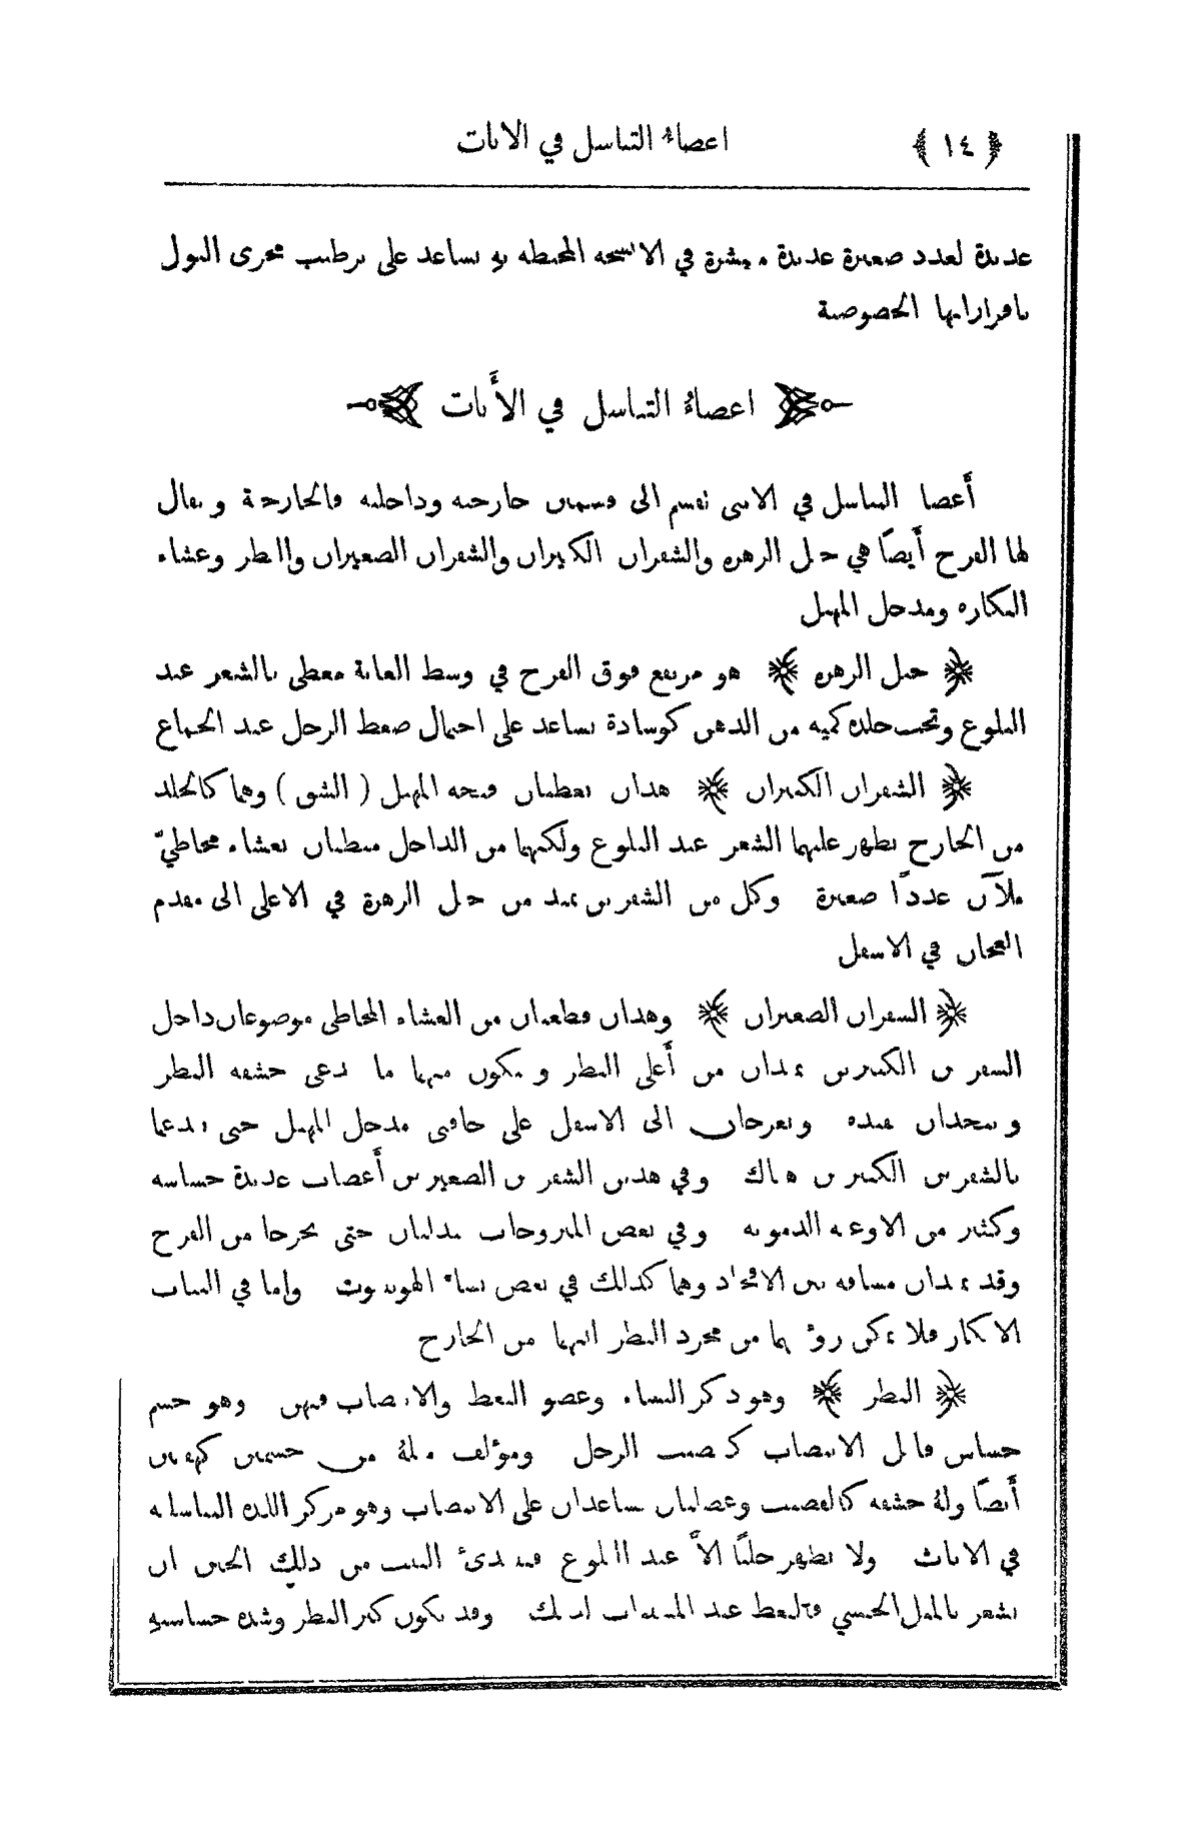 ﴿ ١٤ ﴾ اعضاءُ التناسل في الاناث
عديدة لغدد صغيرة عديدة منتشرة في الانسجه المحيطه به تساعد على ترطيب مجرى البول
بافرازاتها الخصوصية
اعضاءُ التناسل في الأَناث
أَعضا التناسل في الانثى تقسم الى قسمين خارجيه وداخليه فالخارجية ويقال
لها الفرج أَيضًا هي جبل الزهره والشفران الكبيران والشفران الصغيران والبظر وغشاء
البكاره ومدخل المهبل
﴿ جبل الزهره ﴾ هو مرتفع فوق الفرج في وسط العانة مغطى بالشعر عند
البلوغ وتحت جلده كميه من الدهن كوسادة تساعد على احتمال ضغط الرجل عند الجماع
﴿ الشفران الكبيران ﴾ هذان يغطيان فتحه المهبل ( الشق ) وهما كالجلد
من الخارج يظهر عليهما الشعر عند البلوغ ولكنهما من الداخل مبطنان بغشاء مخاطيّ
ملآن غددًا صغيرة وكل من الشفرين يمتد من جبل الزهرة في الاعلى الى مقدم
العجان في الاسفل
﴿ الشفران الصغيران ﴾ وهذان قطعتان من الغشاء المخاطي موضوعان داخل
الشفرين الكبيرين يمتدان من أَعلى البظر ويتكون منهما ما يدعى حشفه البظر
ويتحدان عنده وينفرجان الى الاسفل على حافتي مدخل المهبل حتى يندغما
بالشفرين الكبيرين هناك وفي هذين الشفرين الصغيرين أَعصاب عديدة حساسه
وكثير من الاوعيه الدمويه وفي بعض المتزوجات يتدليان حتى يخرجا من الفرج
وقد يمتدان مسافه بين الافخاد وهما كذلك في بعض نساء الهوتنتوت واما في البنات
الابكار فلا يمكن رؤيتهما من مجرد النظر اليهما من الخارج
﴿ البظر ﴾ وهو ذكر النساء وعضو النعظ والانتصاب فيهن وهو جسم
حساس قابل الانتصاب كقضيب الرجل ومؤلف مثلهُ من جسمين كهفيين
أَيضًا ولهُ حشفه كالقضيب وعضلتان تساعدان على الانتصاب وهو مركز اللذه التناسليه
في الاناث ولا يظهر جليًا الاَّ عند البلوغ فتبتدئُ البنت من ذلك الحين ان
تشعر بالميل الجنسي فالنعظ عند المسببات لذلك وقد يكون كبر البظر وشده حساسيته